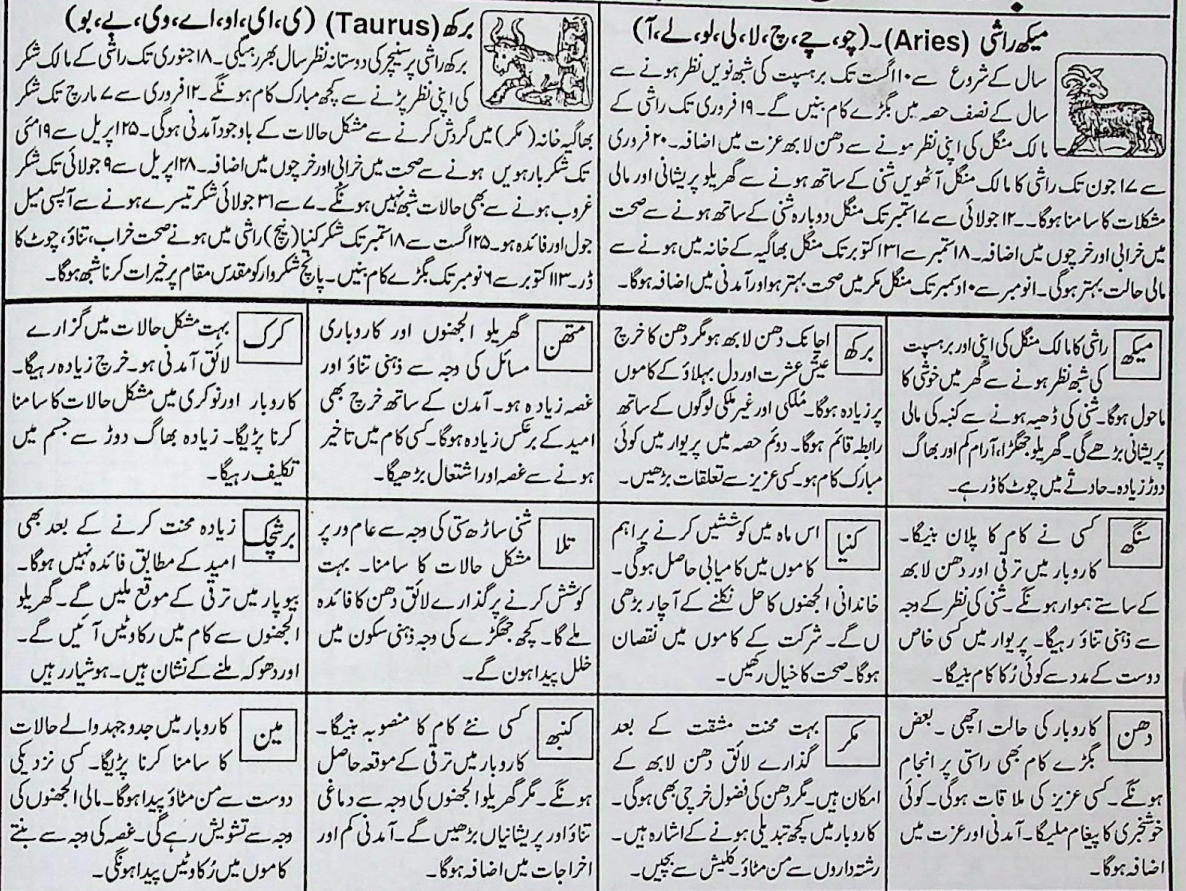 میکھ راشی (Aries)۔(چو، چے، چ، لا، لی، لو، لے، آ)
سال کے شروع سے ۱۰ اگست تک برہسپت کی شبھ نویں نظر ہونے سے
سال کے نصف حصہ میں بگڑے کام بنیں گے۔ ۱۹ فروری تک راشی کے
مالک منگل کی اپنی نظر ہونے سے دھن لابھ عزت میں اضافہ۔ ۲۰ فروری
سے ۱۷ جون تک راشی کا مالک منگل آٹھویں شنی کے ساتھ ہونے سے گھریلو پریشانی اور مالی
مشکلات کا سامنا ہوگا۔۔ ۱۲ جولائی سے ۱۷ ستمبر تک منگل دوبارہ شنی کے ساتھ ہونے سے صحت
میں خرابی اور خرچوں میں اضافہ۔ ۱۸ ستمبر سے ۳۱ اکتوبر تک منگل بھاگیہ کے خانہ میں ہونے سے
مالی حالت بہتر ہوگی۔ انومبر سے ۱۰ دسمبر تک منگل مکر میں صحت بہتر ہو اور آمدنی میں اضافہ ہوگا۔
برکھ (Taurus) (ی، ای، او، اے، وی، بے، بو)
برکھ راشی پر سنیچر کی دوستانہ نظر سال بھر رہیگی۔ ۱۸ جنوری تک راشی کے مالک شکر
کی اپنی نظر پڑنے سے کچھ مبارک کام ہونگے۔ ۱۲ فروری سے ۷ مارچ تک شکر
بھاگیہ خانہ (مکر) میں گردش کرنے سے مشکل حالات کے باوجود آمدنی ہوگی۔ ۲۵ اپریل سے ۱۹ مئی
تک شکر بارہویں ہونے سے صحت میں خرابی اور خرچوں میں اضافہ۔ ۲۸ اپریل سے ۹ جولائی تک شکر
غروب ہونے سے بھی حالات شبھ نہیں ہونگے۔ ۷ سے ۳۱ جولائی شکر تیسرے ہونے سے آپسی میل
جول اور فائدہ ہو۔ ۲۵ اگست سے ۱۸ ستمبر تک شکر کنیا (نیچ) راشی میں ہونے صحت خراب، تناؤ، چوٹ کا
ڈر۔ ۱۳ اکتوبر سے ۶ نومبر تک بگڑے کام بنیں۔ پانچ شکروار کو مقدس مقام پر خیرات کرنا شبھ ہوگا۔
میکھ
راشی کا مالک منگل کی اپنی اور برہسپت
کی شبھ نظر ہونے سے گھر میں خوشی کا
ماحول ہوگا۔ شنی کی ڈھیہ ہونے سے کنبہ کی مالی
پریشانی بڑھے گی۔ گھریلو جھگڑا، آرام کم اور بھاگ
دوڑ زیادہ۔ حادثے میں چوٹ کا ڈر ہے۔
برکھ
اچانک دھن لابھ ہو مگر دھن کا خرچ
عیش عشرت اور دل بہلاؤ کے کاموں
پر زیادہ ہوگا۔ مُلکی اور غیر ملکی لوگوں کے ساتھ
رابطہ قائم ہوگا۔ دوئم حصہ میں پریوار میں کوئی
مبارک کام ہو۔ کسی عزیز سے تعلقات بڑھیں۔
متھن
گھریلو الجھنوں اور کاروباری
مسائل کی وجہ سے ذہنی تناؤ اور
غصہ زیادہ ہو۔ آمدن کے ساتھ خرچ بھی
امید کے برعکس زیادہ ہوگا۔ کسی کام میں تاخیر
ہونے سے غصہ اور اشتعال بڑھیگا۔
کرک
بہت مشکل حالات میں گزارے
لائق آمدنی ہو۔ خرچ زیادہ رہیگا۔
کاروبار اور نوکری میں مشکل حالات کا سامنا
کرنا پڑیگا۔ زیادہ بھاگ دوڑ سے جسم میں
تکلیف رہیگا۔
سنگھ
کسی نے کام کا پلان بنیگا۔
کاروبار میں ترقی اور دھن لابھ
کے ساستے ہموار ہونگے۔ شنی کی نظر کے وجہ
سے ذہنی تناؤ رہیگا۔ پریوار میں کسی خاص
دوست کے مدد سے کوئی رُکا کام بنیگا۔
کنیا
اس ماہ میں کوششیں کرنے پر اہم
کاموں میں کامیابی حاصل ہوگی۔
خاندانی الجھنوں کا حل نکلنے کے آچار بڑھی
ں گے۔ شرکت کے کاموں میں نقصان
ہوگا۔ صحت کا خیال رکھیں۔
تلا
شنی ساڑھ ستی کی وجہ سے عام ور پر
مشکل حالات کا سامنا۔ بہت
کوشش کرنے پر گذارے لائق دھن کا فائدہ
ملے گا۔ کچھ جھگڑے کی وجہ ذہنی سکون میں
خلل پیدا ہون گے۔
برشچک
زیادہ محنت کرنے کے بعد بھی
امید کے مطابق فائدہ نہیں ہوگا۔
بیوپار میں ترقی کے موقع ملیں گے۔ گھریلو
الجھنوں سے کام میں رکاوٹیں آئیں گے۔
اور دھوکہ ملنے کے نشان ہیں۔ ہوشیار رہیں
دھن
کاروبار کی حالت اچھی۔ بعض
بگڑے کام بھی راستی پر انجام
ہونگے۔ کسی عزیز کی ملاقات ہوگی۔ کوئی
خوشخبری کا پیغام ملیگا۔ آمدنی اور عزت میں
اضافہ ہوگا۔
مکر
بہت محنت مشقت کے بعد
گذارے لائق دھن لابھ کے
امکان ہیں۔ مگر دھن کی فضول خرچی بھی ہوگی۔
کاروبار میں کچھ تبدیلی ہونے کے اشارہ ہیں۔
رشتہ داروں سے من مٹاؤ۔ کلیش سے بچیں۔
کنبھ
کسی نئے کام کا منصوبہ بنیگا۔
کاروبار میں ترقی کے موقعہ حاصل
ہونگے۔ مگر گھریلو الجھنوں کی وجہ سے دماغی
تناؤ اور پریشانیاں بڑھیں گے۔ آمدنی کم اور
اخراجات میں اضافہ ہوگا۔
مین
کاروبار میں جدوجہد والے حالات
کا سامنا کرنا پڑیگا۔ کسی نزدیکی
دوست سے من مٹاؤ پیدا ہوگا۔ مالی الجھنوں کی
وجہ سے تشویش رہے گی۔ غصہ کی وجہ سے بنتے
کاموں میں رُکاوٹیں پیدا ہونگی۔